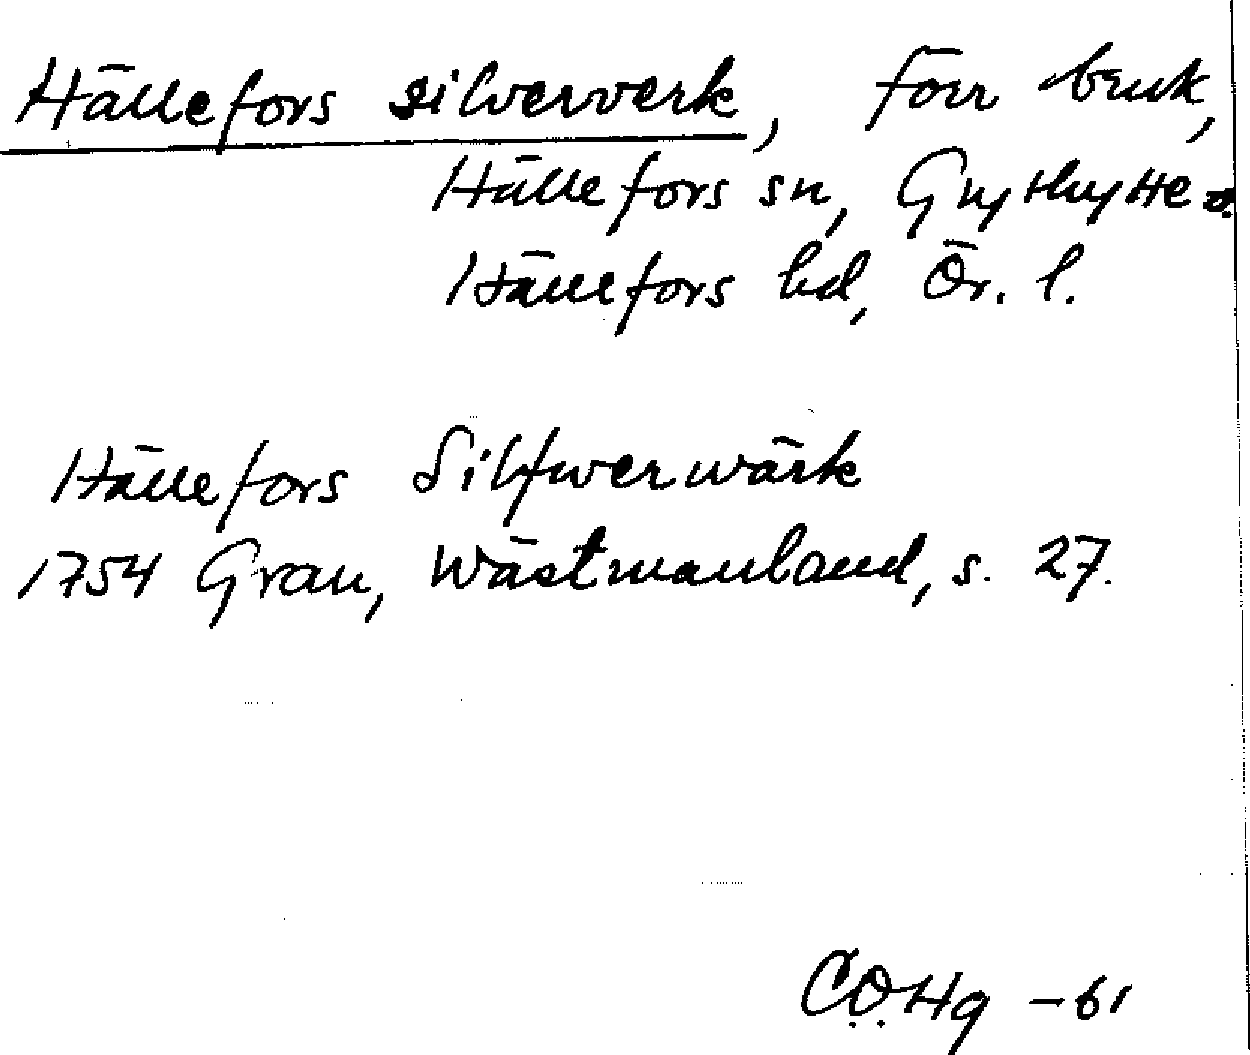 Hällefors silververk, förr bruk,
Hällefors sn, Grythytte o.
Hällefors hd, Ör. l.
Hällefors Silfwerwärk
1754 Grau, Wästmanland, s. 27.
C.O. Hg -61